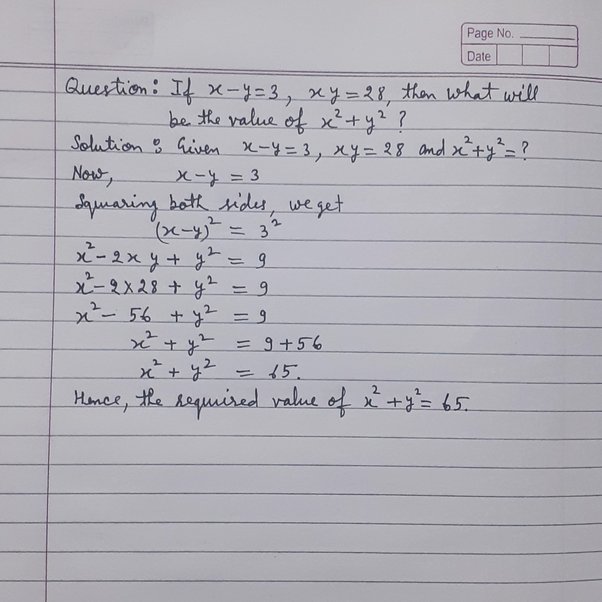 Page No.
Date
Question: If x-y=3, xy=28, then what will
be the value of x²+y²?
Solution: Given x-y=3, xy=28 and x²+y²=?
Now, x-y=3
Squaring both sides, we get
(x-y)² = 3²
x²-2xy+y² = 9
x²-2×28+y² = 9
x²-56+y² = 9
x²+y² = 9+56
x²+y² = 65.
Hence, the required value of x²+y²=65.